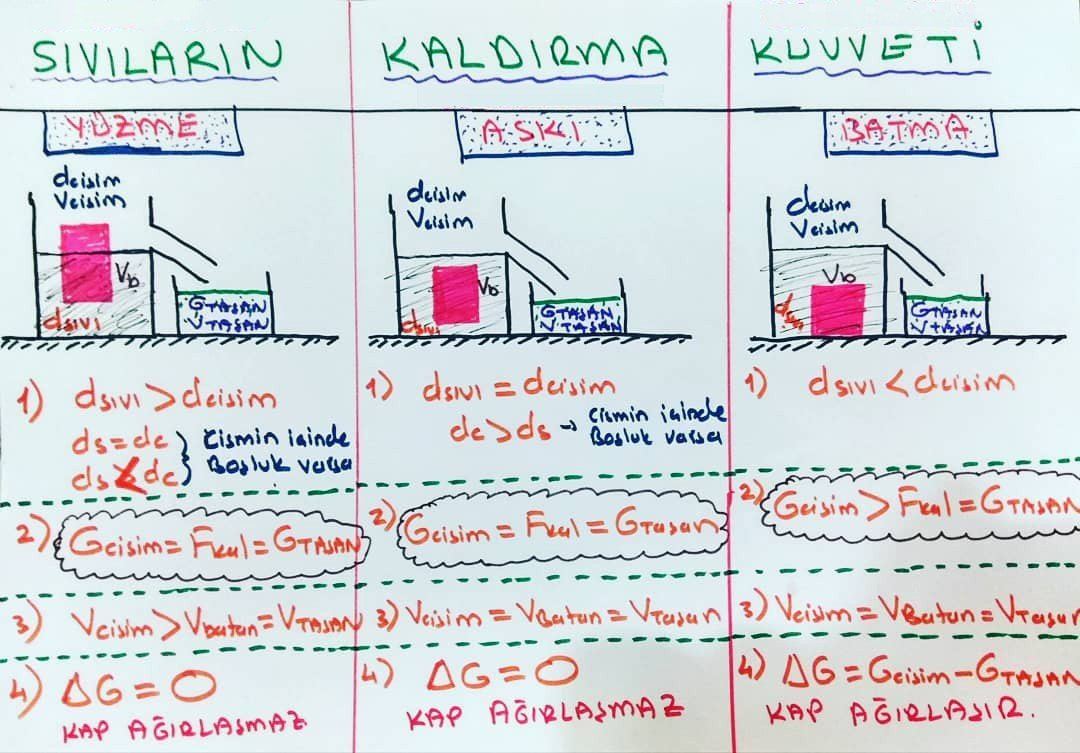 SIVILARIN KALDIRMA KUVVETİ
YÜZME
dcisim
Vcisim
Vb
dsıvı
GTAŞAN
VTAŞAN
1) dsıvı > dcisim
ds = dc
ds < dc
Cismin içinde
Boşluk varsa
2) Gcisim = Fkal = GTAŞAN
3) Vcisim > Vbatan = VTAŞAN
4) ΔG = 0
KAP AĞIRLAŞMAZ.
ASKI
dcisim
Vcisim
Vb
dsıvı
GTAŞAN
VTAŞAN
1) dsıvı = dcisim
dc > ds → Cismin içinde
Boşluk varsa
2) Gcisim = Fkal = GTaşan
3) Vcisim = VBatan = VTaşan
4) ΔG = 0
KAP AĞIRLAŞMAZ
BATMA
dcisim
Vcisim
Vb
dsıvı
GTAŞAN
VTAŞAN
1) dsıvı < dcisim
2) Gcisim > Fkal = GTAŞAN
3) Vcisim = VBatan = VTaşan
4) ΔG = Gcisim - GTAŞAN
KAP AĞIRLAŞIR.